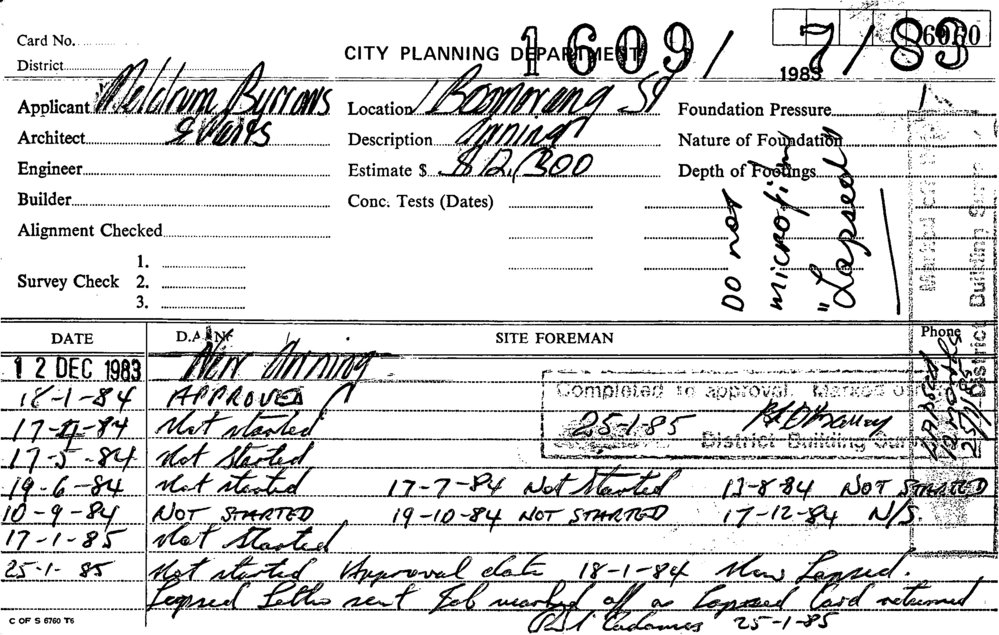 1609/7/83
6060
Card No.
CITY PLANNING DEPARTMENT
1983
District
Applicant Meldrum Burrows
Location 1 Boomerang St
Foundation Pressure
Architect
Description Awning
Nature of Foundation
Engineer
Estimate $ $12,300
Depth of Footings
Builder
Conc. Tests (Dates)
Alignment Checked
Survey Check
1.
2.
3.
DO not
microfilm
"Lapsed"
DATE D.A. No. SITE FOREMAN Phone
12 DEC 1983 New Awning
18-1-84 APPROVED
Completed to approval. Marked off
17-4-84 Not started
25-1-85
District Building Surv
17-5-84 Not started
19-6-84 Not started 17-7-84 Not Started 13-8-84 NOT STARTED
10-9-84 NOT STARTED 19-10-84 NOT STARTED 17-12-84 N/S.
17-1-85 Not Started
25-1-85 Not started Approval date 18-1-84 Now Lapsed.
Lapsed Letter sent Job marked off as Lapsed Card returned
25-1-85
Marked off
District Building Surv
Lapsed
12 months
C OF S 6760 T6